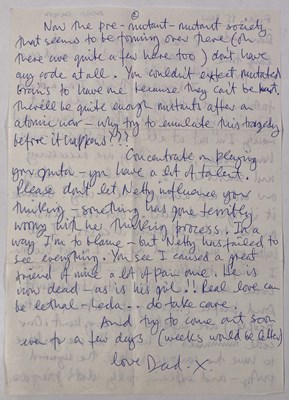 Now the pre-mutant-mutant society
that seems to be forming over there (oh
there are quite a few here too) don't have
any code at all. You couldn't expect mutated
brains to have one because they can't be
There'll be quite enough mutants after an
atomic war - why try to emulate this tragedy
before it happens???
Concentrate on playing
your guitar - you have a lot of talent.
Please don't let Netty influence your
thinking - something has gone terribly
wrong with her thinking process. In a
way, I'm to blame - but Netty has failed to
see everything. You see I caused a great
friend of mine a lot of pain once. He is
now dead - as is his girl!! Real love can
be lethal - Leda... do take care.
And try to come out soon
even for a few days (weeks would be better)
love Dad. X.